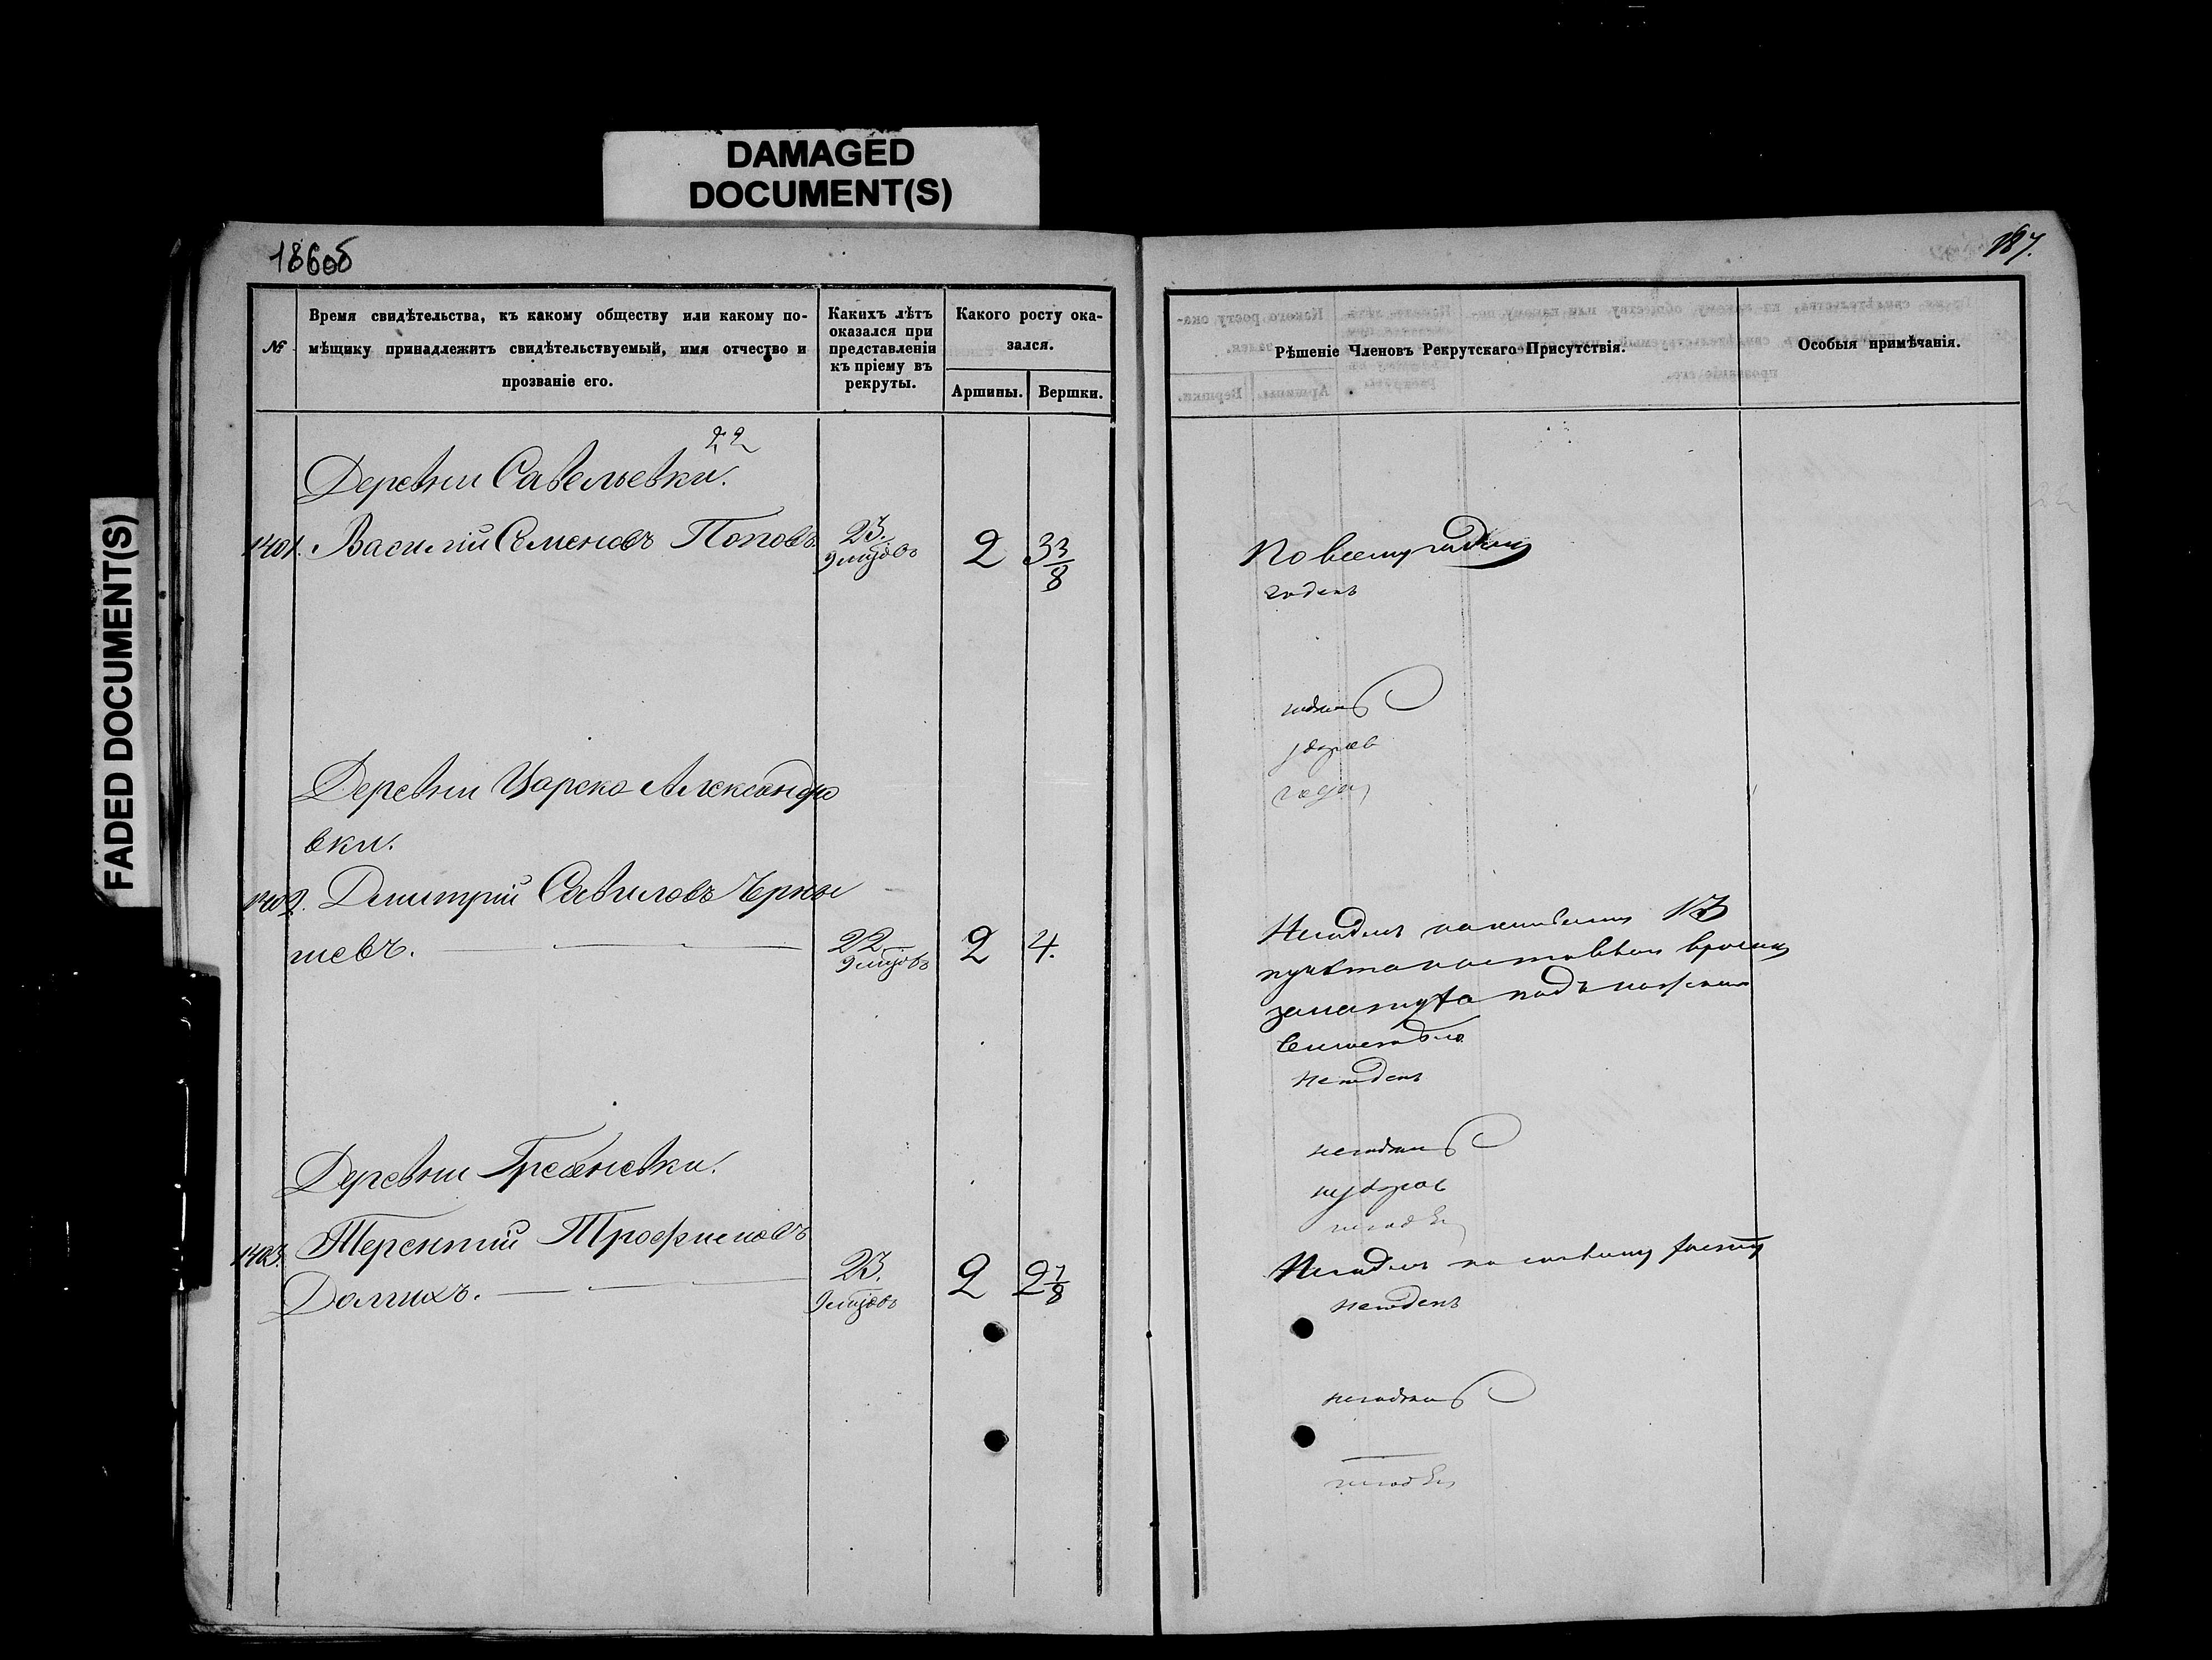 DAMAGED
DOCUMENT(S)
FADED DOCUMENT(S)
186об
№
Время свидѣтельства, къ какому обществу или какому по-
мѣщику принадлежитъ свидѣтельствуемый, имя отчество и
прозваніе его.
Какихъ лѣтъ
оказался при
представленіи
къ пріему въ
рекруты.
Какого росту ока-
зался.
Аршины.
Вершки.
22
Деревни Савельевки.
1401. Василій Семеновъ Поповъ 23. 2 3 3/8
9 мѣсцовъ
Деревни Царско Александро
вки.
1402. Дмитрій Савиловъ Черны
шевъ. 22 2 4.
9 мѣсцовъ
Деревни Гребеневки.
1403. Терентій Трофимовъ
Долгихъ. 23. 2 2 7/8
9 мѣсцовъ
187.
Рѣшеніе Членовъ Рекрутскаго Присутствія.
Особыя примѣчанія.
По всему годенъ
годенъ
годенъ
здоров
годен
Негоденъ
пункта
негоденъ
негоденъ
нездоров
негоден
Негоденъ по малому росту
негоденъ
негоденъ
негоден